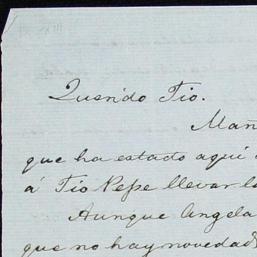 Querido Tio.
Mañ
que ha estado aquí
á Tio Pepe llevar l
Aunque Angela
que no hay novedad